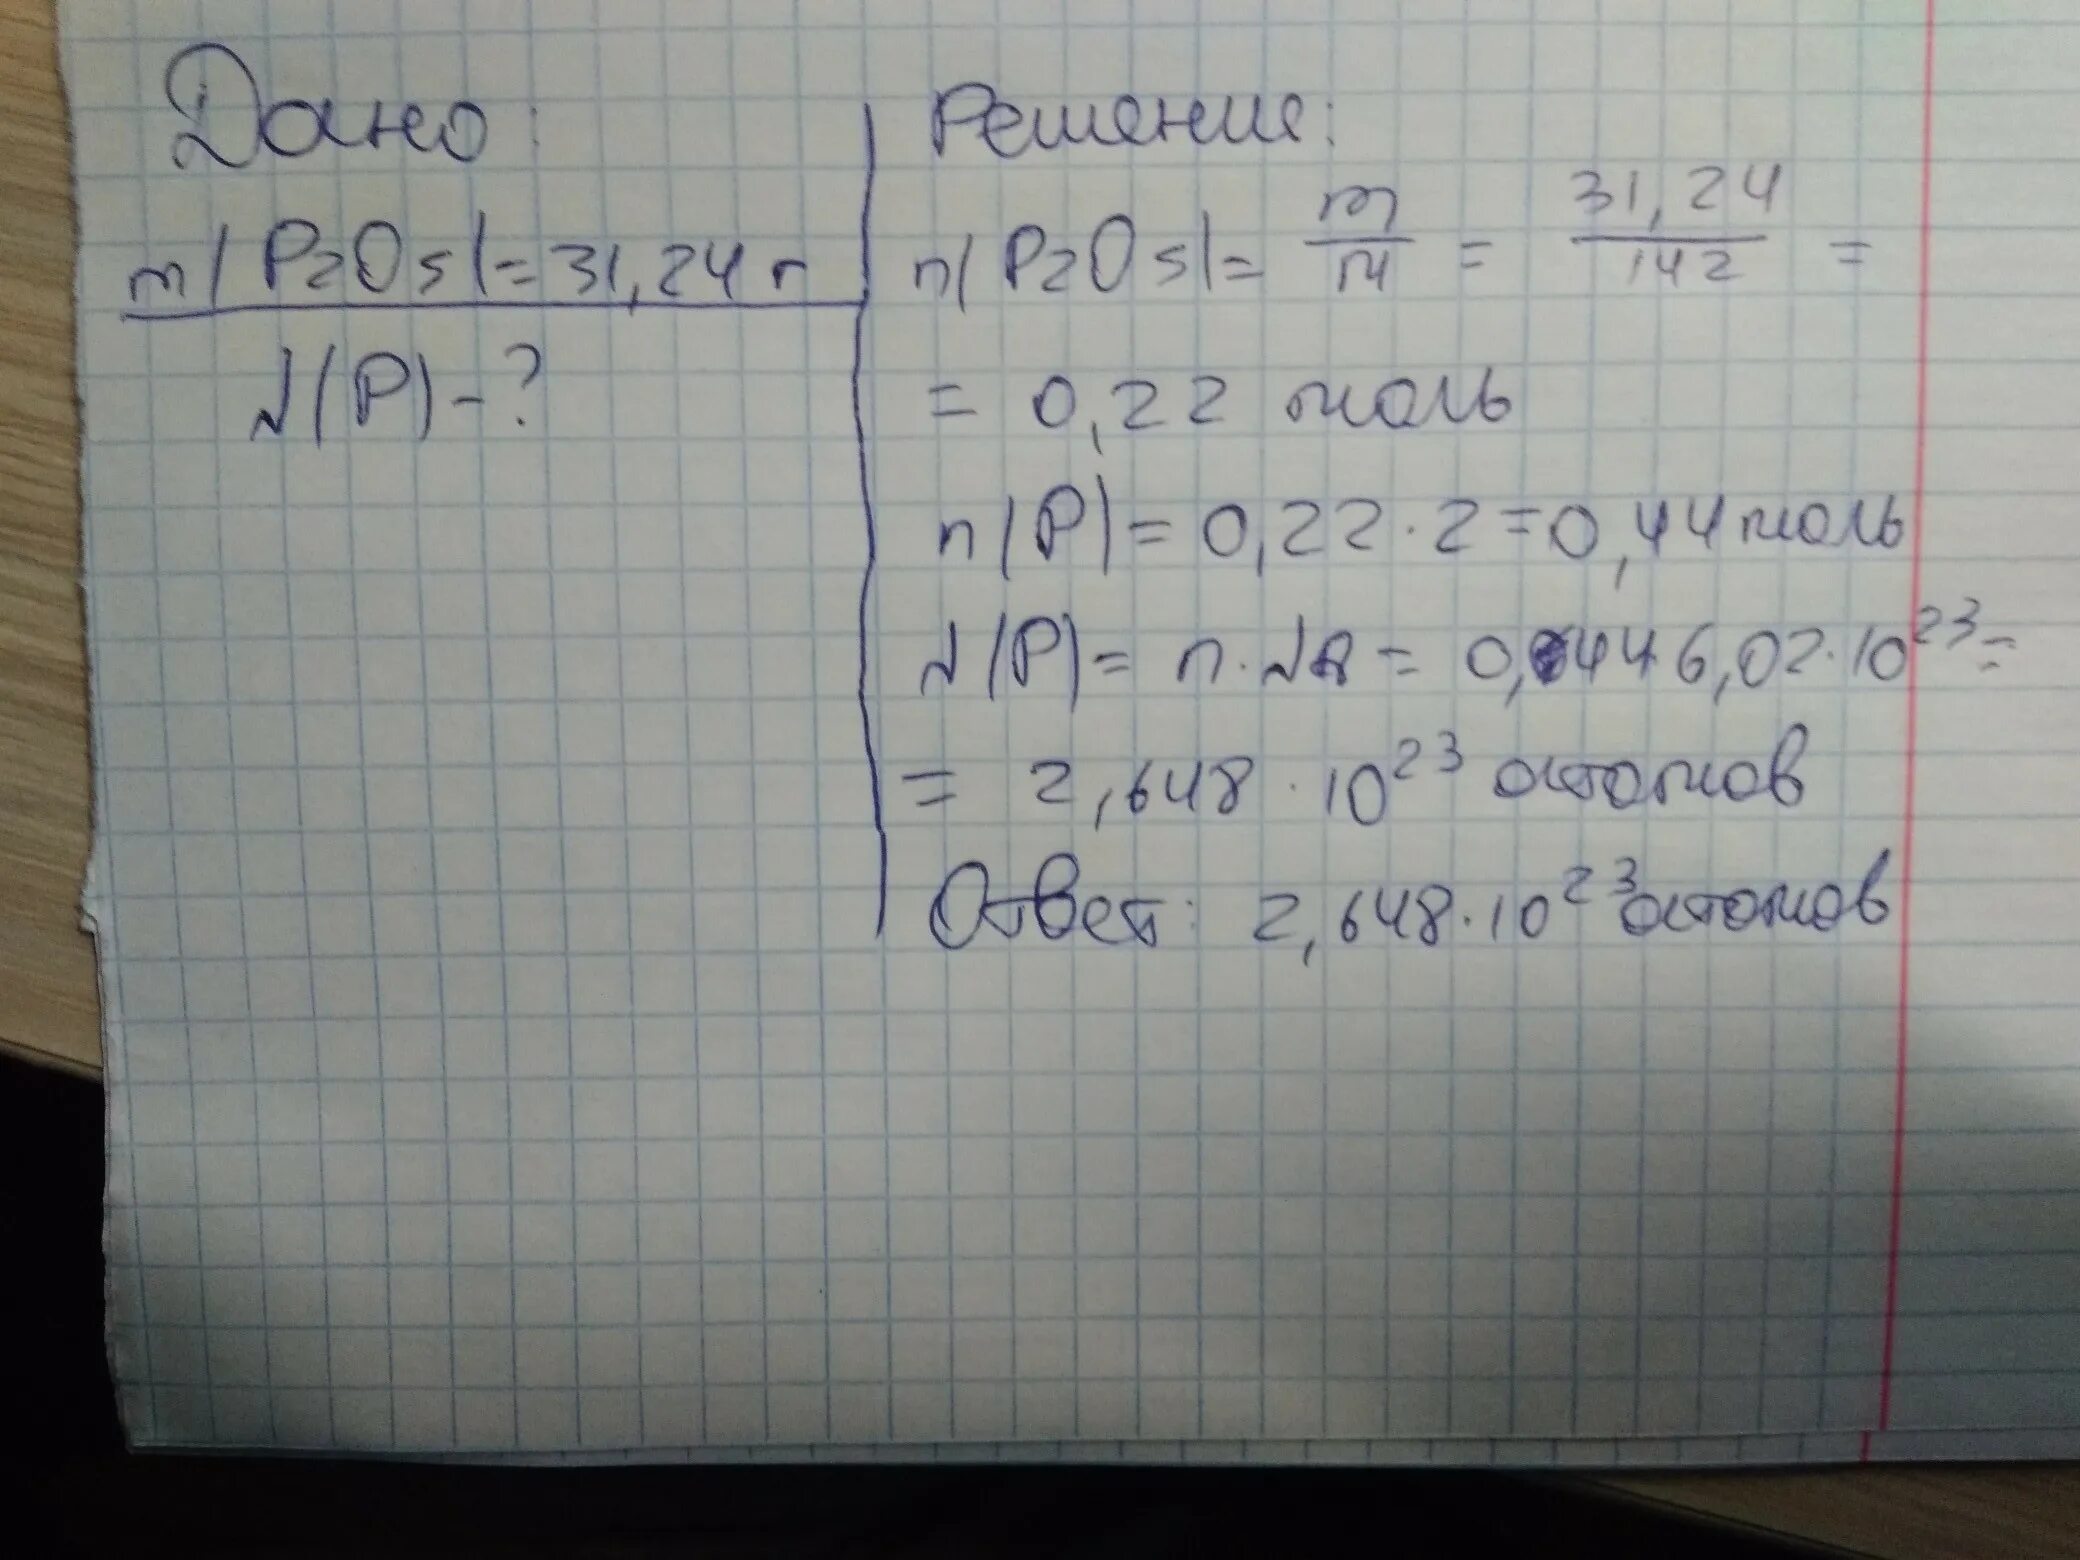 Дано:
m(P2O5)=31,24 г
N(P)-?
Решение:
n(P2O5)= m/M = 31,24/142 =
= 0,22 моль
n(P)= 0,22·2=0,44 моль
N(P)= n·NA= 0,44·6,02·10²³=
= 2,648·10²³ атомов
Ответ: 2,648·10²³ атомов